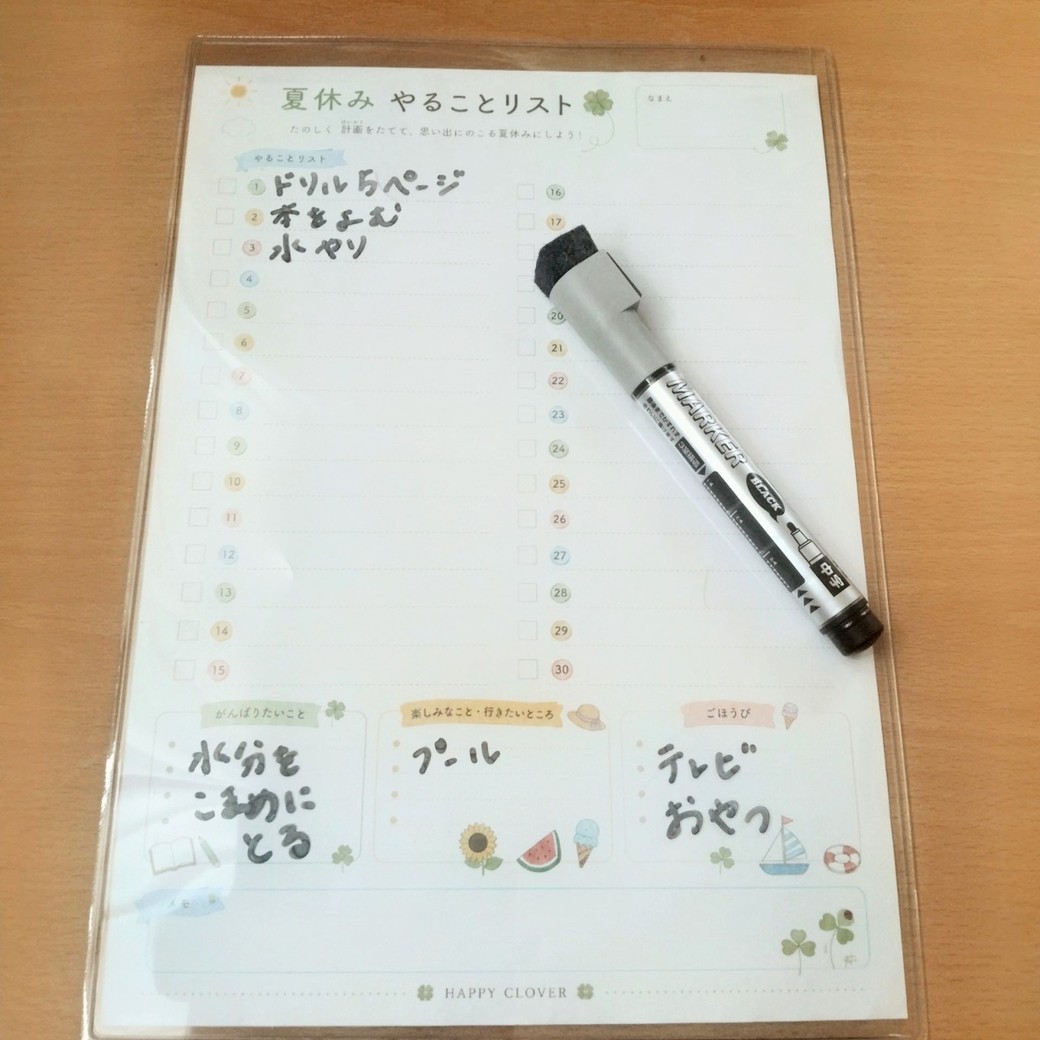 夏休み やることリスト
たのしく 計画をたてて、思い出にのこる夏休みにしよう!
なまえ
やることリスト
1 ドリル5ページ
2 本をよむ
3 水やり
4
5
6
7
8
9
10
11
12
13
14
15
16
17
20
21
22
23
24
25
26
27
28
29
30
MARKER
BLACK
中字
がんばりたいこと
水分を
こまめに
とる
楽しみなこと・行きたいところ
プール
ごほうび
テレビ
おやつ
メモ
HAPPY CLOVER